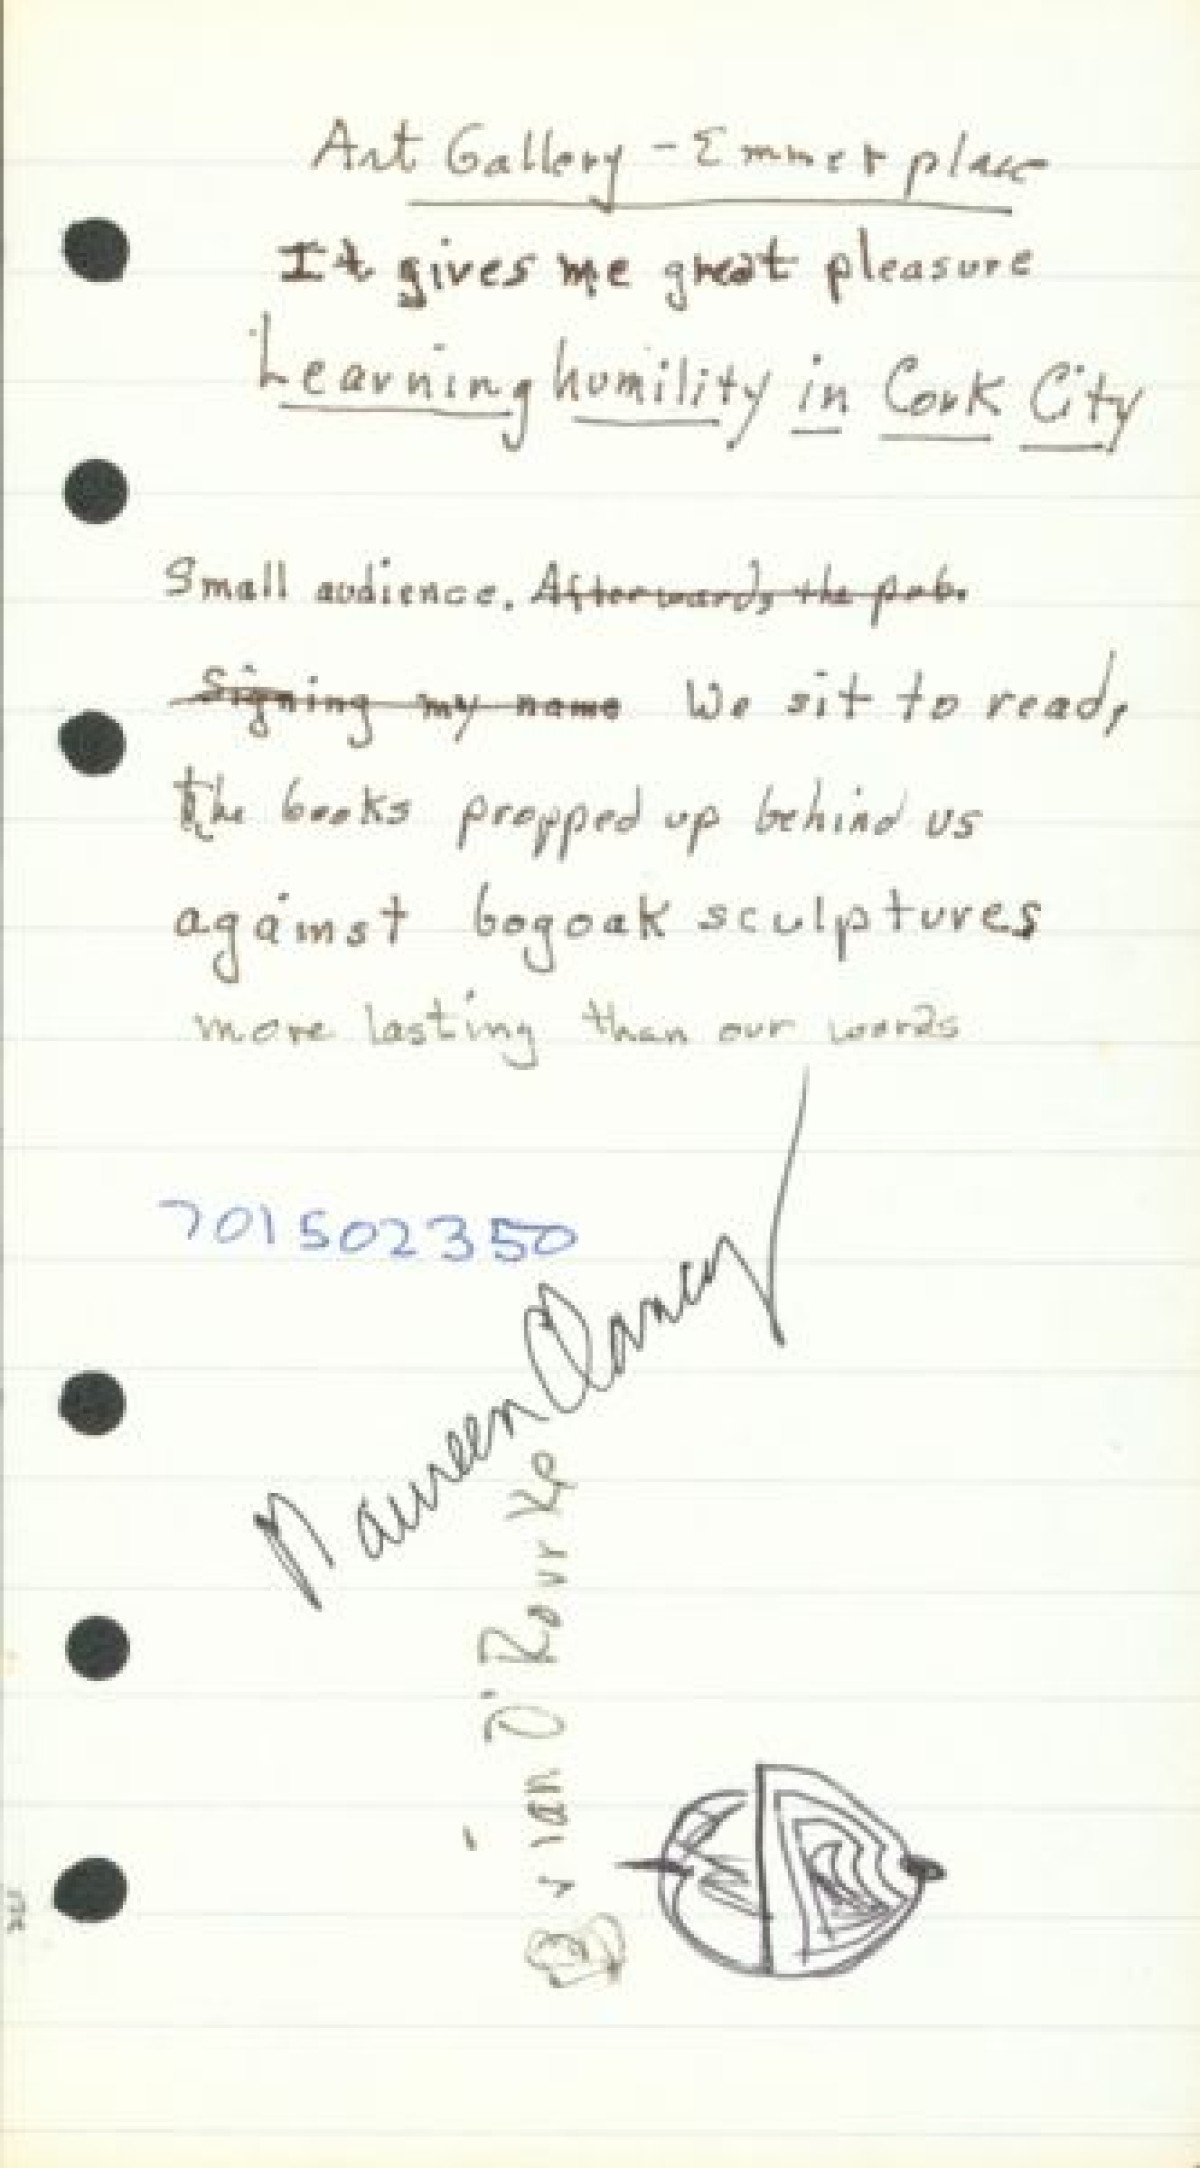 Art Gallery - Emmet place
It gives me great pleasure
Learning humility in Cork City
Small audience. Afterwards the pub.
Signing my name We sit to read,
the books propped up behind us
against bogoak sculptures
more lasting than our words
701502350
Maureen Clancy
Brian O'Rourke